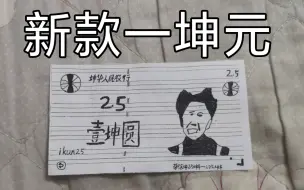 新款一坤元
坤华人民银行
2.5
25
壹坤圆
ikun25